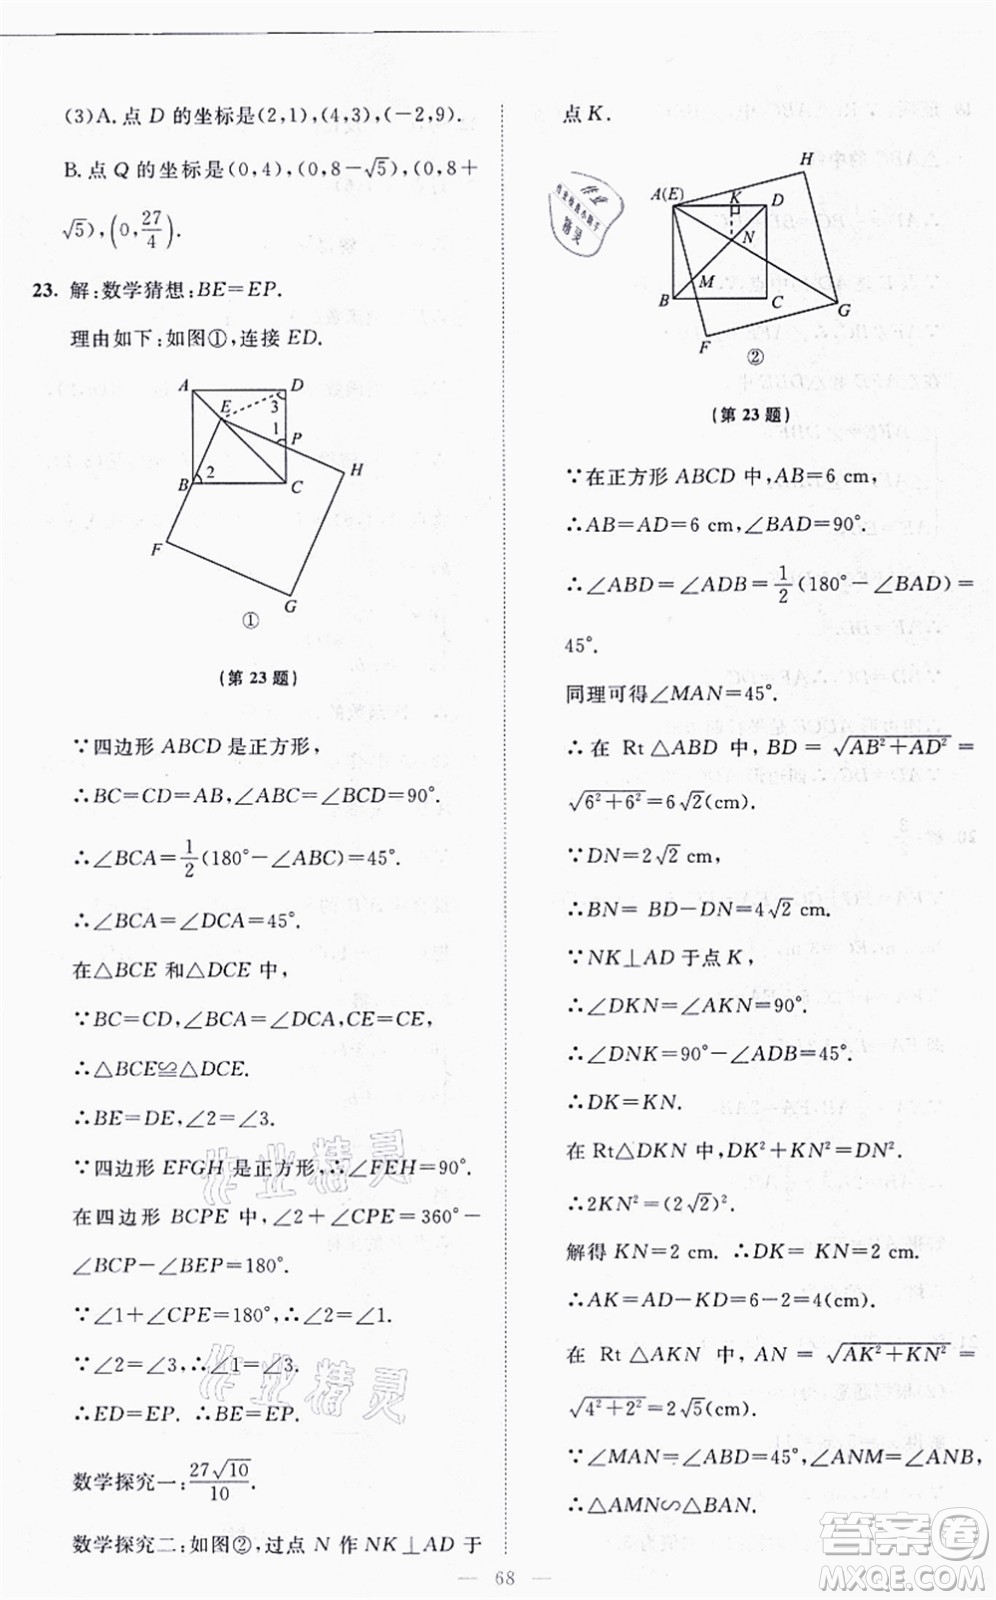 (3)A.点 D 的坐标是(2,1),(4,3),(-2,9).
B.点 Q 的坐标是(0,4),(0,8-√5),(0,8+
√5),(0,27/4).
23. 解:数学猜想:BE=EP.
理由如下:如图①,连接 ED.
A D
E 3
1 P
H
B 2 C
F
G
①
(第 23 题)
∵四边形 ABCD 是正方形,
∴BC=CD=AB,∠ABC=∠BCD=90°.
∴∠BCA=1/2(180°-∠ABC)=45°.
∴∠BCA=∠DCA=45°.
在△BCE 和△DCE 中,
∵BC=CD,∠BCA=∠DCA,CE=CE,
∴△BCE≌△DCE.
∴BE=DE,∠2=∠3.
∵四边形 EFGH 是正方形,∴∠FEH=90°.
在四边形 BCPE 中,∠2+∠CPE=360°-
∠BCP-∠BEP=180°.
∵∠1+∠CPE=180°,∴∠2=∠1.
∵∠2=∠3,∴∠1=∠3.
∴ED=EP. ∴BE=EP.
数学探究一:27√10/10.
数学探究二:如图②,过点 N 作 NK⊥AD 于
点 K.
H
A(E) K D
N
M
B C G
F
②
(第 23 题)
∵在正方形 ABCD 中,AB=6 cm,
∴AB=AD=6 cm,∠BAD=90°.
∴∠ABD=∠ADB=1/2(180°-∠BAD)=
45°.
同理可得∠MAN=45°.
∴在 Rt△ABD 中,BD=√(AB²+AD²)=
√(6²+6²)=6√2(cm).
∵DN=2√2 cm,
∴BN=BD-DN=4√2 cm.
∵NK⊥AD 于点 K,
∴∠DKN=∠AKN=90°.
∴∠DNK=90°-∠ADB=45°.
∴DK=KN.
在 Rt△DKN 中,DK²+KN²=DN².
∴2KN²=(2√2)².
解得 KN=2 cm. ∴DK=KN=2 cm.
∴AK=AD-KD=6-2=4(cm).
在 Rt△AKN 中,AN=√(AK²+KN²)=
√(4²+2²)=2√5(cm).
∵∠MAN=∠ABD=45°,∠ANM=∠ANB,
∴△AMN∽△BAN.
— 68 —
作业精灵
作业精灵
作业
精灵
答案卷
MXQE.COM